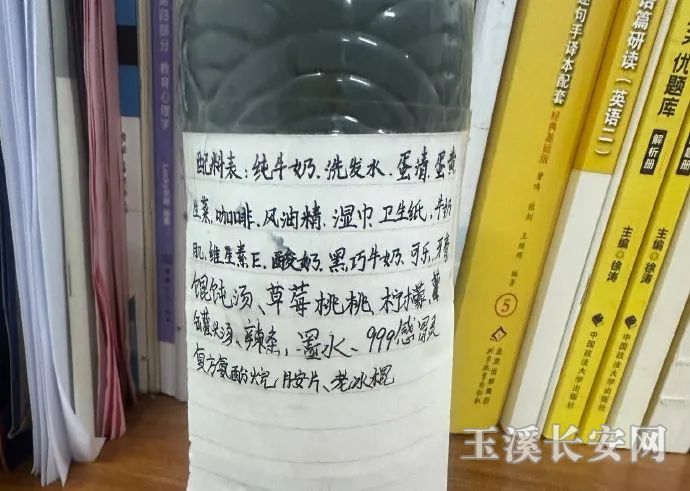 四部分 教育心理学
配料表:纯牛奶、洗发水、蛋清、蛋黄
生菜、咖啡、风油精、湿巾、卫生纸、牛奶
肌、维生素E、酸奶、黑巧牛奶、可乐、
馄饨汤、草莓桃桃、柠檬、
汤、辣条、墨水、999感冒灵
复方氨酚烷胺片、老冰棍
句手译本配套
经典基础版
⑤
语篇研读(英语二)
主编 徐涛
中国政法大学出版社
优题库
解析册
主编 徐涛
中国政法大学出版社
玉溪长安网